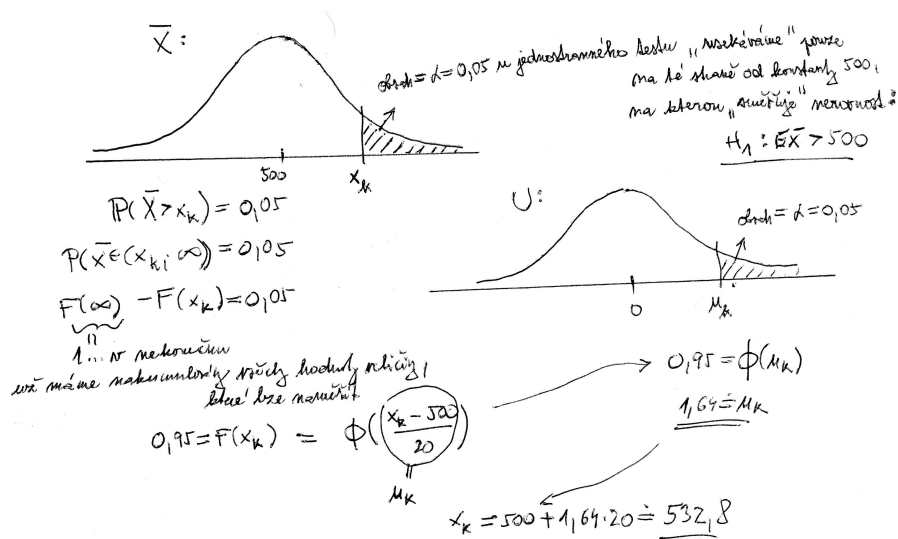 X̄:
obsah = α = 0,05 u jednostranného testu „usekáváme" pouze
na té straně od konstanty 500,
na kterou „směřuje" nerovnost:
H₁: EX̄ > 500
500
x_k
U:
P(X̄ > x_k) = 0,05
obsah = α = 0,05
P(X̄ ∈ (x_k; ∞)) = 0,05
F(∞) − F(x_k) = 0,05
0
u_k
1... v nekonečnu
už máme nakumulovány všechny hodnoty veličiny,
které lze naměřit
0,95 = Φ(u_k)
1,64 ≐ u_k
0,95 = F(x_k) = Φ((x_k − 500)/20)
u_k
x_k = 500 + 1,64·20 ≐ 532,8